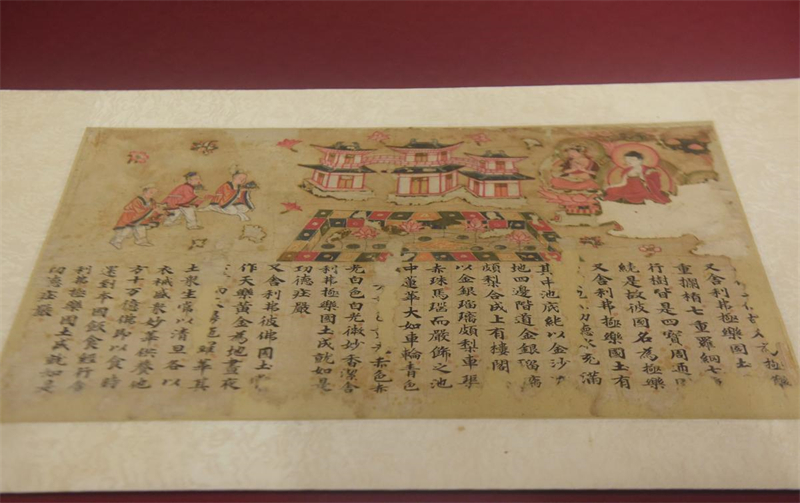 極樂
又舍利弗極樂國土
重欄楯七重羅網七
行樹皆是四寶周通
繞是故彼國名為極樂
又舍利弗極樂國土有
充滿
其中池底純以金沙
地四邊階道金銀瑠璃
頗梨合成上有樓閣
以金銀瑠璃頗梨車𤦲
赤珠馬瑙而嚴飾之池
中蓮華大如車輪青色
赤色赤
光白色白光微妙香潔舍
利弗極樂國土成就如是
功德莊嚴
又舍利弗彼佛國土
作天樂黃金為地晝夜
華其
土眾生常以清旦各以
衣裓盛眾妙華供養他
方十万億佛即以食時
還到本國飯食經行舍
利弗極樂國土成就如是
功德莊嚴